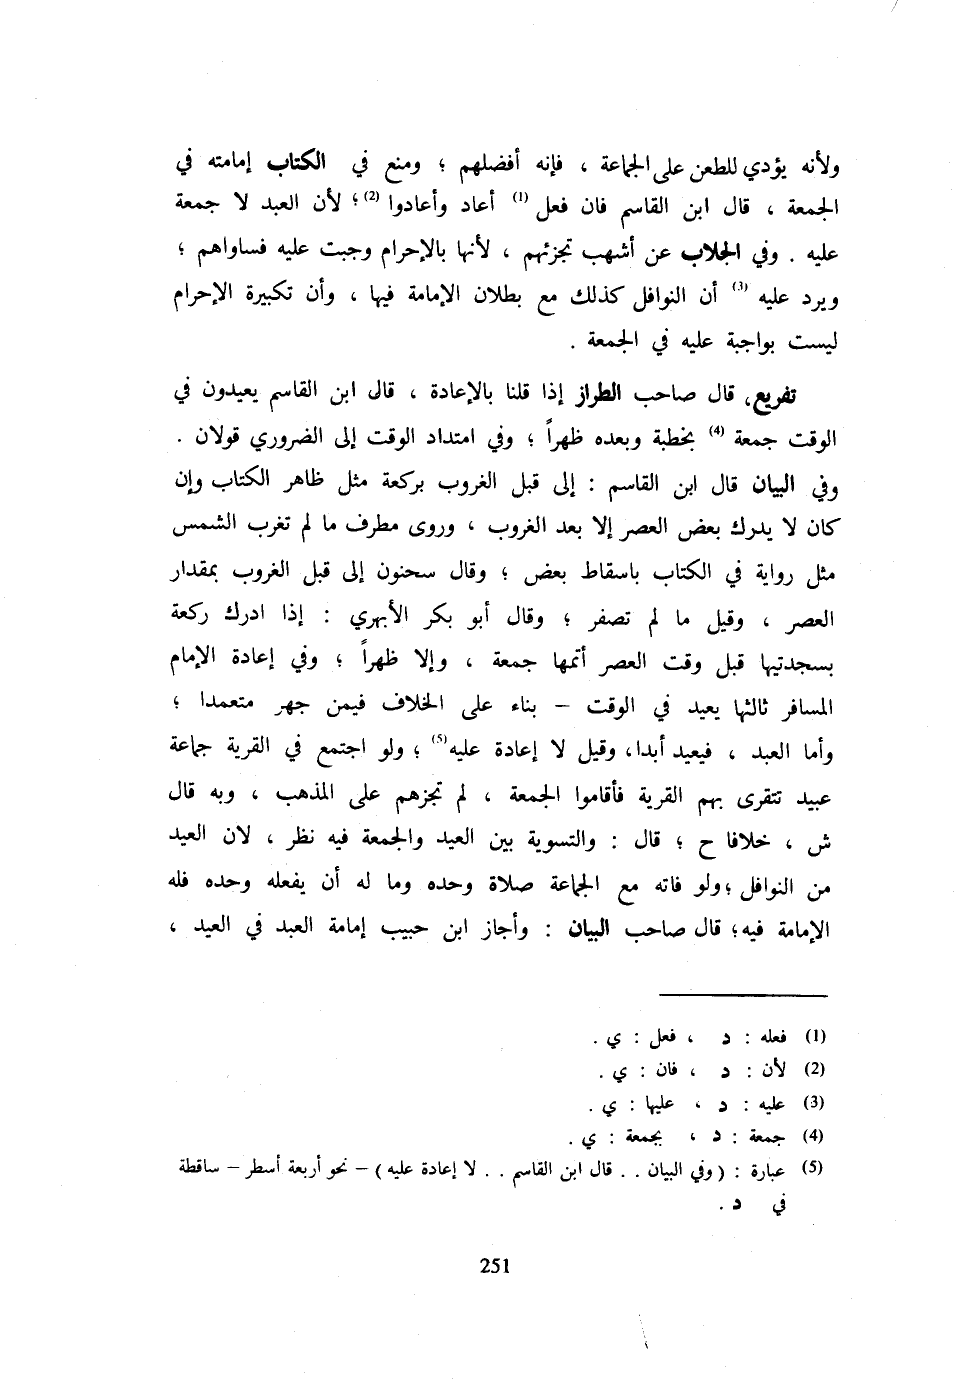 ولأنه يؤدي للطعن على الجماعة ، فإنه أفضلهم ؛ ومنع في الكتاب إمامته في
الجمعة ، قال ابن القاسم فان فعل (1) أعاد وأعادوا (2)؛ لأن العبد لا جمعة
عليه . وفي الجلاب عن أشهب تجزئهم ، لأنها بالإحرام وجبت عليه فساواهم ؛
ويرد عليه (3) أن النوافل كذلك مع بطلان الإمامة فيها ، وأن تكبيرة الإحرام
ليست بواجبة عليه في الجمعة .
تفريع، قال صاحب الطراز إذا قلنا بالإعادة ، قال ابن القاسم يعيدون في
الوقت جمعة (4) بخطبة وبعده ظهراً ؛ وفي امتداد الوقت إلى الضروري قولان .
وفي البيان قال ابن القاسم : إلى قبل الغروب بركعة مثل ظاهر الكتاب وإن
كان لا يدرك بعض العصر إلا بعد الغروب ، وروى مطرف ما لم تغرب الشمس
مثل رواية في الكتاب باسقاط بعض ؛ وقال سحنون إلى قبل الغروب بمقدار
العصر ، وقيل ما لم تصفر ؛ وقال أبو بكر الأبهري : إذا ادرك ركعة
بسجدتيها قبل وقت العصر أتمها جمعة ، وإلا ظهراً ؛ وفي إعادة الإمام
المسافر ثالثها يعيد في الوقت – بناء على الخلاف فيمن جهر متعمدا ؛
وأما العبد ، فيعيد أبدا، وقيل لا إعادة عليه(5) ؛ ولو اجتمع في القرية جماعة
عبيد تتقرى بهم القرية فأقاموا الجمعة ، لم تجزهم على المذهب ، وبه قال
ش ، خلافا ح ؛ قال : والتسوية بين العيد والجمعة فيه نظر ، لان العيد
من النوافل ؛ ولو فاته مع الجماعة صلاة وحده وما له أن يفعله وحده فله
الإمامة فيه؛ قال صاحب البيان : وأجاز ابن حبيب إمامة العبد في العيد ،
(1) فعله : د ، فعل : ي .
(2) لأن : د ، فان : ي .
(3) عليه : د ، عليها : ي .
(4) جمعة : د ، بجمعة : ي .
(5) عبارة : ( وفي البيان . . قال ابن القاسم . . لا إعادة عليه ) – نحو أربعة أسطر – ساقطة
في د .
251